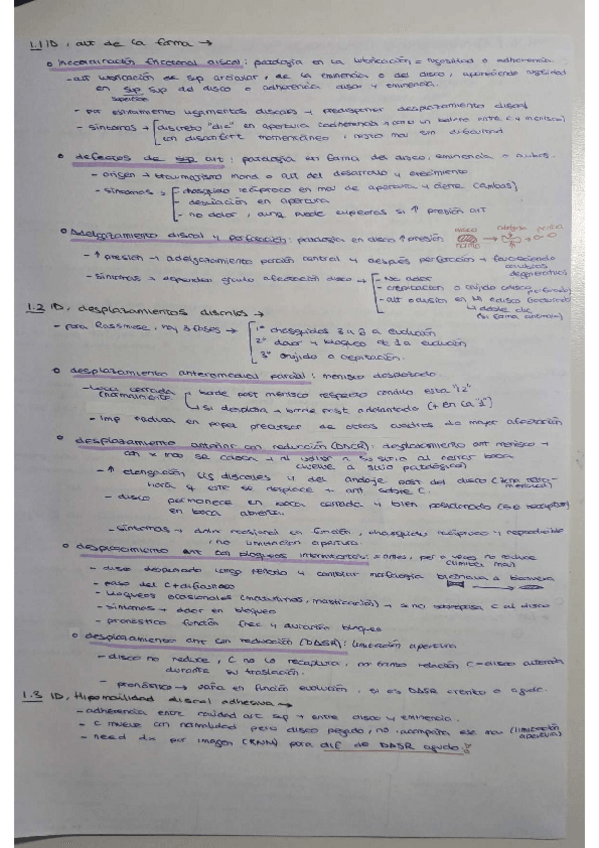 1.1 ID, alt de la forma →
incoordinación funcional discal: patología en la lubricación = rugosidad o adherencia.
- alt lubricación de sup articular, de la eminencia o del disco, apareciendo rugosidad
en sup sup del disco o adherencia disco y eminencia.
superficie
- por estiramiento ligamentos discales → predisponer desplazamiento discal
- síntomas → discreto "clic" en apertura (adherencia → como un entre C y menisco)
con disconfort momentáneo, resto mov sin dificultad
defectos de sup art: patología en forma del disco, eminencia o ambos.
- origen → traumatismo mand o alt del desarrollo y crecimiento
- síntomas → chasquido recíproco en mov de apertura y cierre (ambos)
- desviación en apertura
- no dolor, aunq puede aparecer si ↑ presión art
Adelgazamiento discal y perforación: patología en disco ↑ presión
- ↑ presión → adelgazamiento porción central y después perforación → favoreciendo
cambios
degenerativos
- síntomas → dependen grado afectación disco → - No dolor
- crepitación o crujido (disco perforado)
- alt oclusión en
1.2 ID, desplazamientos discales →
- para Rasmusse, hay 3 fases → 1º chasquidos 3 a evolución
2º dolor y bloqueo de 1 a evolución
3º crujido o crepitación.
desplazamiento anteromedial parcial: menisco desplazado.
- boca cerrada
(normalmente) borde post menisco respecto cóndilo esta "12"
si desplaza → borde post adelantado (+ en la "1")
- imp radica en papel precursor de otros cuadros de mayor afectación
desplazamiento anterior con reducción (DACR): desplazamiento ant menisco →
- ↑ elongación lig discales y del anclaje post del disco
hará q este se desplace + ant sobre C.
- disco permanece en boca cerrada y bien posicionado (se recaptura)
en boca abierta.
- síntomas → dolor ocasional en función, chasquido recíproco y reproducible
, no limitación apertura.
desplazamiento ant con bloqueos intermitentes: = antes, pero a veces no reduce
(limita mov)
- disco desplazado largo período y cambiar morfología bicóncava a biconvexa
- paso del C + dificultoso
- bloqueos ocasionales (madrugadas, masticación) → = no sobrepasa C al disco
- síntomas → dolor en bloqueo
- pronóstico función frec y duración bloqueos
desplazamiento ant con reducción (DASR): limitación apertura
- disco no reduce, C no lo recaptura, no forma relación C-disco alterada
durante su traslación.
- pronóstico → varía en función evolución, si es DASR crónico o agudo.
1.3 ID, Hipomovilidad discal adhesiva →
- adherencia entre cavidad art sup → entre disco y eminencia.
- C mueve con normalidad pero disco pegado, no acompaña ese mov (limitación
apertura)
- need dx por imagen (RNM) para dif de DASR agudo!